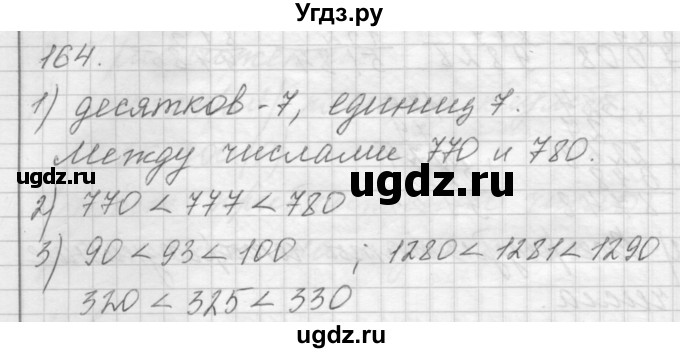 Угдз.ру
164.
1) десятков - 7, единиц 7.
Между числами 770 и 780.
ugdz.ru ugdz.ru ugdz.ru
2) 770 < 777 < 780
3) 90 < 93 < 100 ; 1280 < 1281 < 1290
320 < 325 < 330
ugdz.ru ugdz.ru